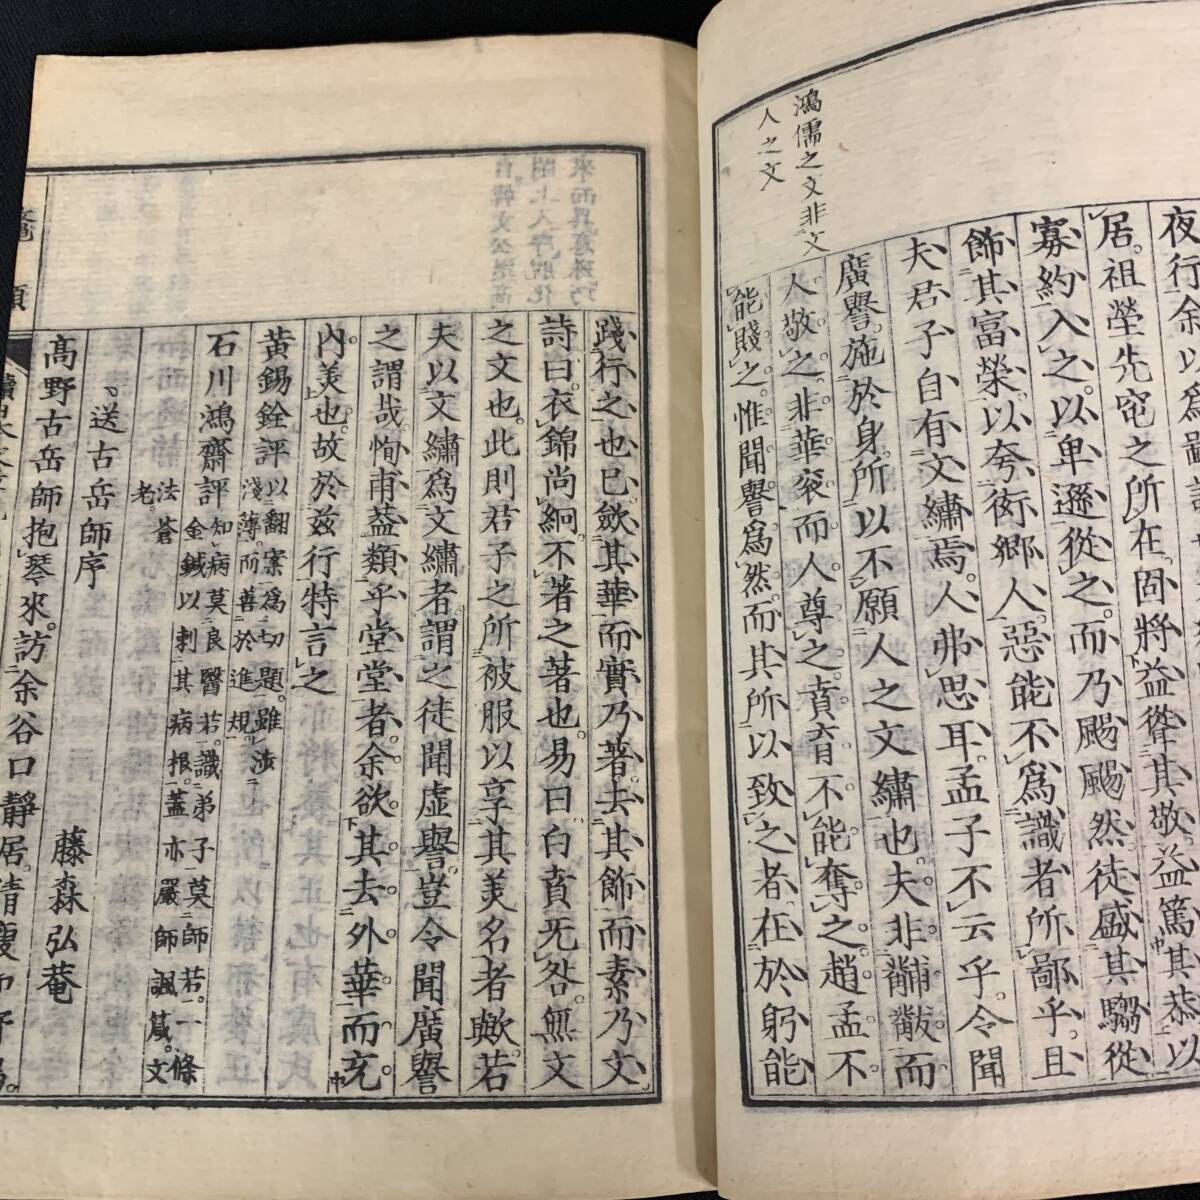 鴻儒之文非文
人之文
夜行余以爲
居祖塋先窀之所在固將益聳其敬益篤其恭以
寡約入之以卑遜從之而乃颺颺然徒盛其騶從
飾其富榮以夸衒鄉人惡能不爲識者所鄙乎且
夫君子自有文繡焉人弗思耳孟子不云乎令聞
廣譽施於身所以不願人之文繡也夫非黼黻而
人敬之非華衮而人尊之賁育不能奪之趙孟不
能賤之惟聞譽爲然而其所以致之者在於躬能
踐行之也已斂其華而實乃著去其飾而素乃文
詩曰衣錦尚絅不著之著也易曰白賁无咎無文
之文也此則君子之所被服以享其美名者歟若
夫以文繡爲文繡者謂之徒聞虛譽豈令聞廣譽
之謂哉恂甫葢類乎堂堂者余欲其去外華而充
內美也故於玆行特言之
黃錫銓評以翻案爲切題雖涉
淺薄而善於進規
石川鴻齋評知病莫良醫若識弟子莫師若一條
金鍼以刺其病根蓋亦嚴師諷箴文
法蒼
老
送古岳師序
藤森弘菴
高野古岳師抱琴來訪余谷口靜居清瘦